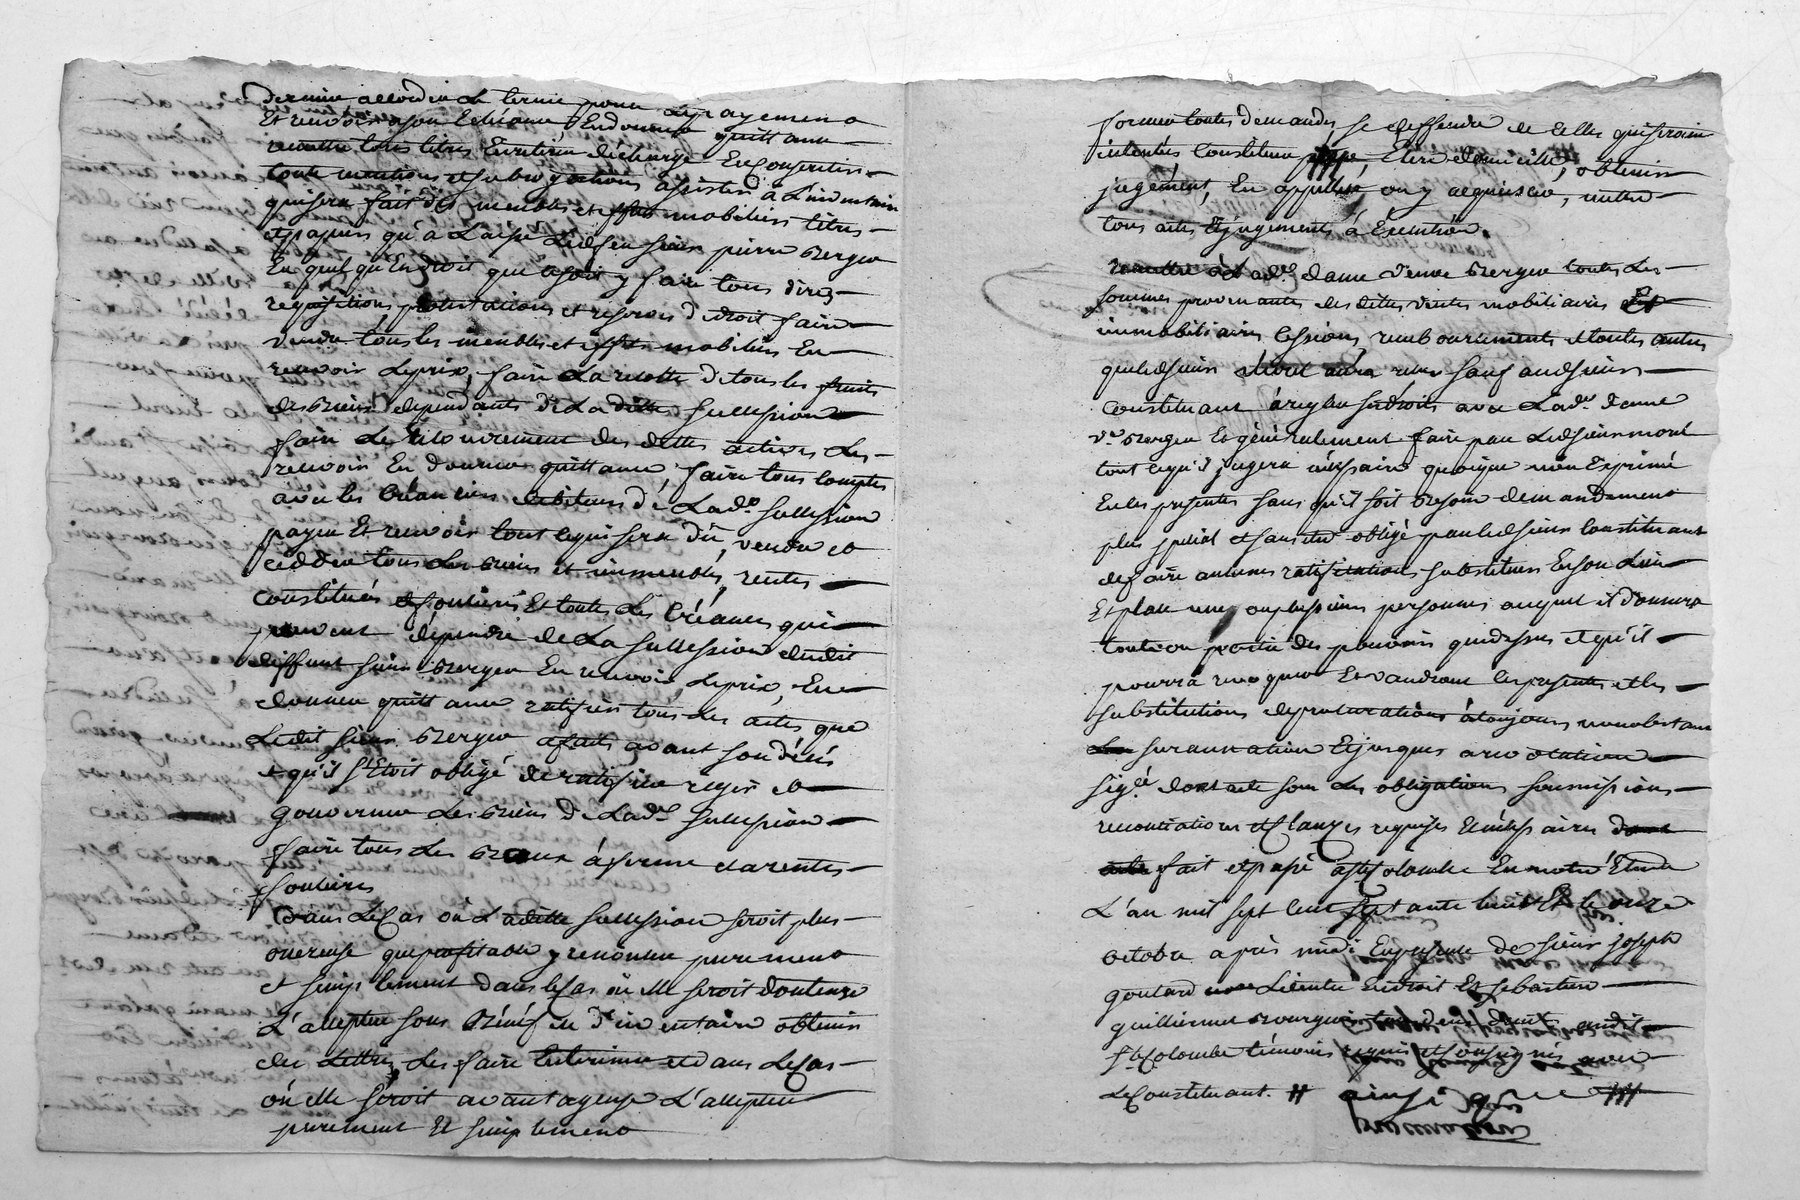 dernier accorder le terme pour les payements
Et recevoir a son Echéance, En donner quittance
remettre tous titres Entretenir décharge Et Consentir
toute mentions et subrogations assister à L'inventaire
qui sera fait des meubles et effets mobiliers titres
et papiers qu'a Laissé Ledit feu sieur pierre Berger
En quel qu'Endroit que ce soit y faire tous dires
requisitions protestations et reserves d droit faire
vendre tous les meubles et effets mobiliers En
recevoir le prix, faire La recolte de tous les fruits
des Biens dependants de La ditte succession
faire Le recouvrement des dettes actives Les
recevoir En donner quittance, faire tous comptes
avec les Créanciers debiteurs de Lad.e succession
payer Et recevoir tout ce qui sera dû, vendre et
cedder tous Les Biens et immeubles, rentes
constituées et foncieres Et toutes Les Créances qui
peuvent dépendre de La succession dudit
deffunt sieur Berger En recevoir Le prix, En
donner quittance ratifier tous Les actes que
Ledit sieur Berger a faits avant son décés
et qu'il s'Etoit obligé de ratifier regir et
gouverner Les Biens de Lad.e succession
faire tous Les Beaux à ferme et a rentes
foncieres
Dans Le Cas où L'aditte succession seroit plus
onereuse que profitable y renoncer purement
et simplement dans le Cas ou elle seroit douteuse
L'accepter sous Bénéfice d'inventaire obtenir
des Lettres, Les faire Enteriner et dans Le Cas
où elle seroit avantageuse L'accepter
purement Et simplement
former toutes demandes, se deffendre de celles qui seroient
intentées Constituer Elire domicille, obtenir
jugement, En appeller ou y acquiescer, mettre
tous actes Et jugement à Exécution
remettre à Lad.e dame veuve Berger toutes Les
sommes provenantes des dittes ventes mobiliaires Et
immobiliaires cessions, remboursements et toutes autres
que ledsieur aura reçu sauf audsieur
constituant à regler ses droits avec Lad.e dame
v.e Berger Et généralement faire par Ledsieur
tout ce qu'il jugera nécessaire quoique non Exprimé
En les presentes sans qu'il soit Besoin de mandement
plus special et sans etre obligé par ledsieur Constituant
de faire aucunes ratifications substituer En son Lieu
Et place une ou plusieurs personnes auquel il donnera
tout ou partie des pouvoirs que dessus et qu'il
pourra revoquer Et vaudront les presentes et les
substitutions de procurations à toujours nonobstant
surannation Et jusques a revocation
dont acte sous Les obligations soumissions
renonciations et clauzes requises Et nécessaires
fait et passé a Ste Colombe En notre Etude
L'an mil sept cent septante huit Et le onze
octobre après midi En presence de sieur Joseph
goutard Licentié Endroit Et sébastien
guillermet Bourgeois tous deux dud.t audit
Ste Colombe témoins requis et soussignés avec
Le Constituant. // ainsi ///